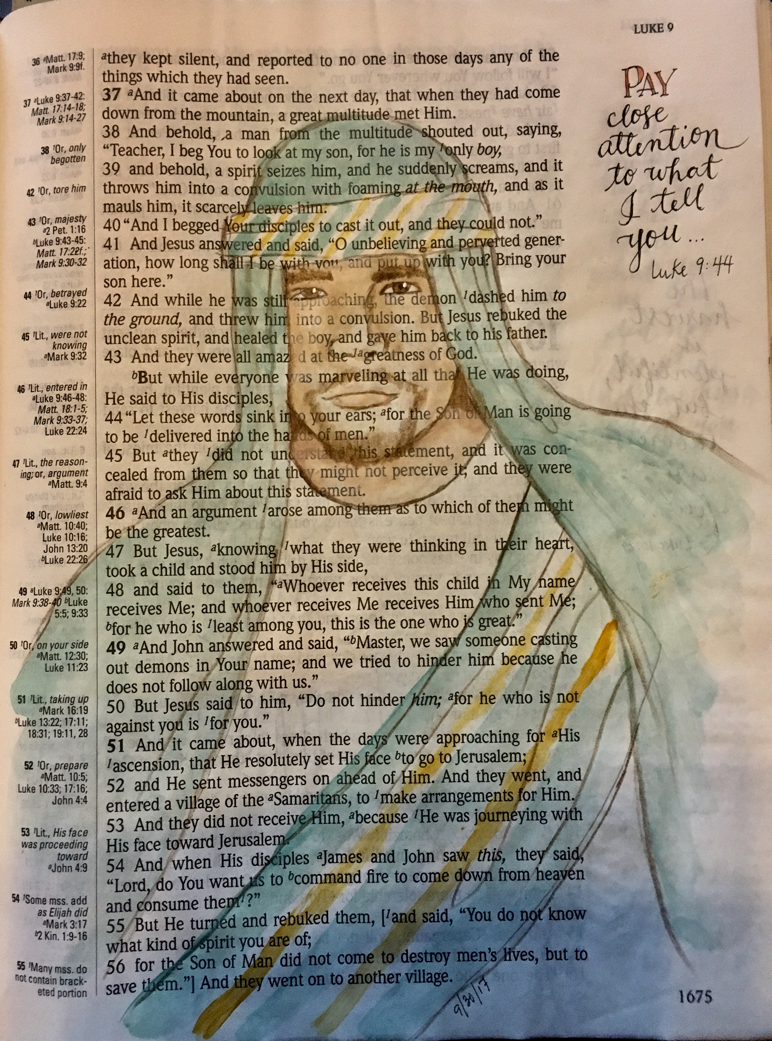 LUKE 9
36 ᵃMatt. 17:9;
Mark 9:9f.
37 ᵃLuke 9:37-42:
Matt. 17:14-18;
Mark 9:14-27
38 ᶠOr, only
begotten
42 ᶠOr, tore him
43 ᶠOr, majesty
ᵃ2 Pet. 1:16
ᵇLuke 9:43-45:
Matt. 17:22f.;
Mark 9:30-32
44 ᶠOr, betrayed
ᵃLuke 9:22
45 ᶠLit., were not
knowing
ᵃMark 9:32
46 ᶠLit., entered in
ᵃLuke 9:46-48:
Matt. 18:1-5;
Mark 9:33-37;
Luke 22:24
47 ᶠLit., the reason-
ing; or, argument
ᵃMatt. 9:4
48 ᶠOr, lowliest
ᵃMatt. 10:40;
Luke 10:16;
John 13:20
ᵇLuke 22:26
49 ᵃLuke 9:49, 50:
Mark 9:38-40 ᵇLuke
5:5; 9:33
50 ᶠOr, on your side
ᵃMatt. 12:30;
Luke 11:23
51 ᶠLit., taking up
ᵃMark 16:19
ᵇLuke 13:22; 17:11;
18:31; 19:11, 28
52 ᶠOr, prepare
ᵃMatt. 10:5;
Luke 10:33; 17:16;
John 4:4
53 ᶠLit., His face
was proceeding
toward
ᵃJohn 4:9
54 ᶠSome mss. add
as Elijah did
ᵃMark 3:17
ᵇ2 Kin. 1:9-16
55 ᶠMany mss. do
not contain brack-
eted portion
ᵃthey kept silent, and reported to no one in those days any of the
things which they had seen.
37 ᵃAnd it came about on the next day, that when they had come
down from the mountain, a great multitude met Him.
38 And behold, a man from the multitude shouted out, saying,
“Teacher, I beg You to look at my son, for he is my ᶠonly boy,
39 and behold, a spirit seizes him, and he suddenly screams, and it
throws him into a convulsion with foaming at the mouth, and as it
mauls him, it scarcely leaves him.
40 “And I begged Your disciples to cast it out, and they could not.”
41 And Jesus answered and said, “O unbelieving and perverted gener-
ation, how long shall I be with you, and put up with you? Bring your
son here.”
42 And while he was still approaching, the demon ᶠdashed him to
the ground, and threw him into a convulsion. But Jesus rebuked the
unclean spirit, and healed the boy, and gave him back to his father.
43 And they were all amazed at the ᶠᵃgreatness of God.
ᵇBut while everyone was marveling at all that He was doing,
He said to His disciples,
44 “Let these words sink into your ears; ᵃfor the Son of Man is going
to be ᶠdelivered into the hands of men.”
45 But ᵃthey ᶠdid not understand this statement, and it was con-
cealed from them so that they might not perceive it; and they were
afraid to ask Him about this statement.
46 ᵃAnd an argument ᶠarose among them as to which of them might
be the greatest.
47 But Jesus, ᵃknowing ᶠwhat they were thinking in their heart,
took a child and stood him by His side,
48 and said to them, “ᵃWhoever receives this child in My name
receives Me; and whoever receives Me receives Him who sent Me;
ᵇfor he who is ᶠleast among you, this is the one who is great.”
49 ᵃAnd John answered and said, “ᵇMaster, we saw someone casting
out demons in Your name; and we tried to hinder him because he
does not follow along with us.”
50 But Jesus said to him, “Do not hinder him; ᵃfor he who is not
against you is ᶠfor you.”
51 And it came about, when the days were approaching for ᵃHis
ᶠascension, that He resolutely set His face ᵇto go to Jerusalem;
52 and He sent messengers on ahead of Him. And they went, and
entered a village of the ᵃSamaritans, to ᶠmake arrangements for Him.
53 And they did not receive Him, ᵃbecause ᶠHe was journeying with
His face toward Jerusalem.
54 And when His disciples ᵃJames and John saw this, they said,
“Lord, do You want us to ᵇcommand fire to come down from heaven
and consume themᶠ?”
55 But He turned and rebuked them, [ᶠand said, “You do not know
what kind of spirit you are of;
56 for the Son of Man did not come to destroy men’s lives, but to
save them.”] And they went on to another village.
PAY
close
attention
to what
I tell
you...
Luke 9:44
9/30/17
1675